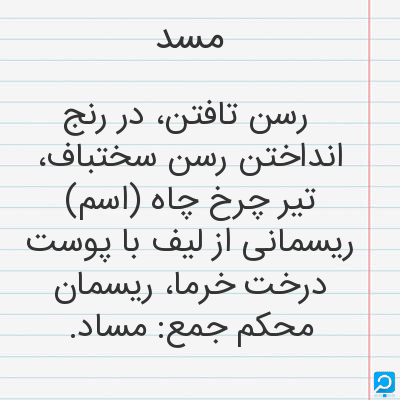 مسد
رسن تافتن، در رنج
انداختن رسن سختباف،
تیر چرخ چاه (اسم)
ریسمانی از لیف با پوست
درخت خرما، ریسمان
محکم جمع: مساد.